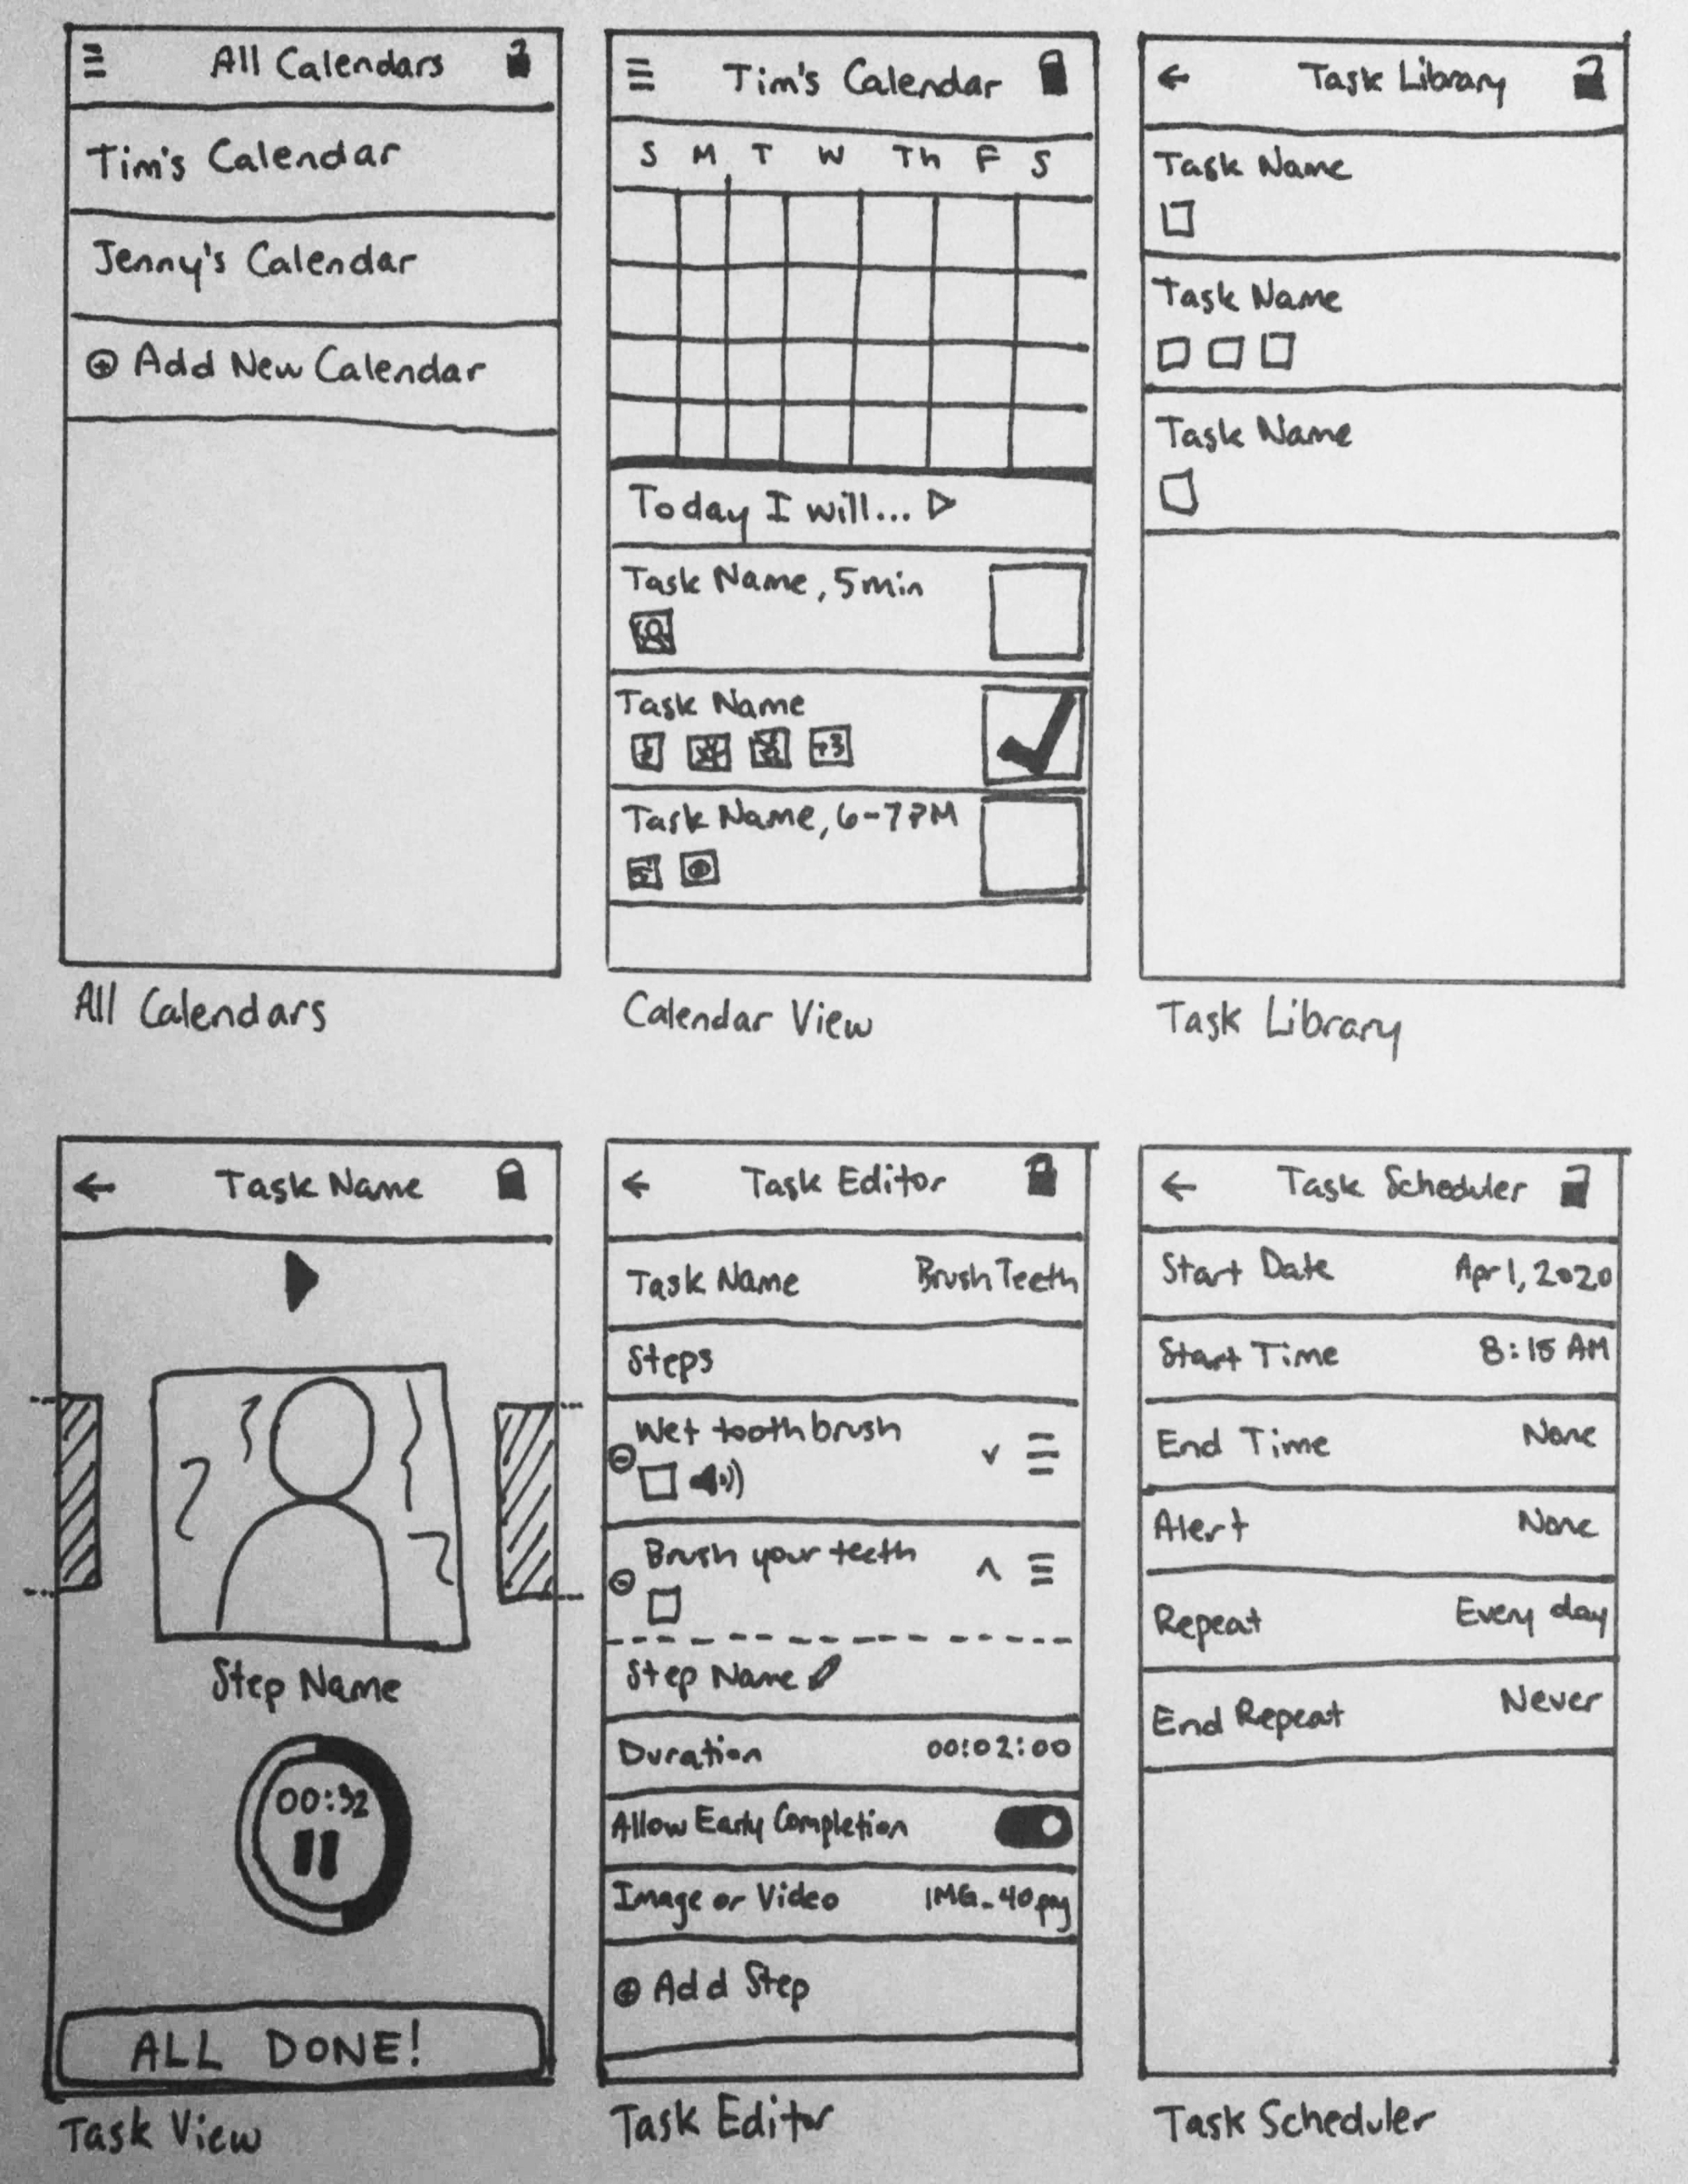 All Calendars
Tim's Calendar
Jenny's Calendar
Add New Calendar
All Calendars
Tim's Calendar
S M T W Th F S
Today I will...
Task Name, 5min
Task Name
+3
Task Name, 6-7PM
Calendar View
Task Library
Task Name
Task Name
Task Name
Task Library
Task Name
Step Name
00:32
ALL DONE!
Task View
Task Editor
Task Name Brush Teeth
Steps
Wet toothbrush
Brush your teeth
Step Name
Duration 00:02:00
Allow Early Completion
Image or Video IMG_40.png
Add Step
Task Editor
Task Scheduler
Start Date Apr 1, 2020
Start Time 8:15 AM
End Time None
Alert None
Repeat Every day
End Repeat Never
Task Scheduler